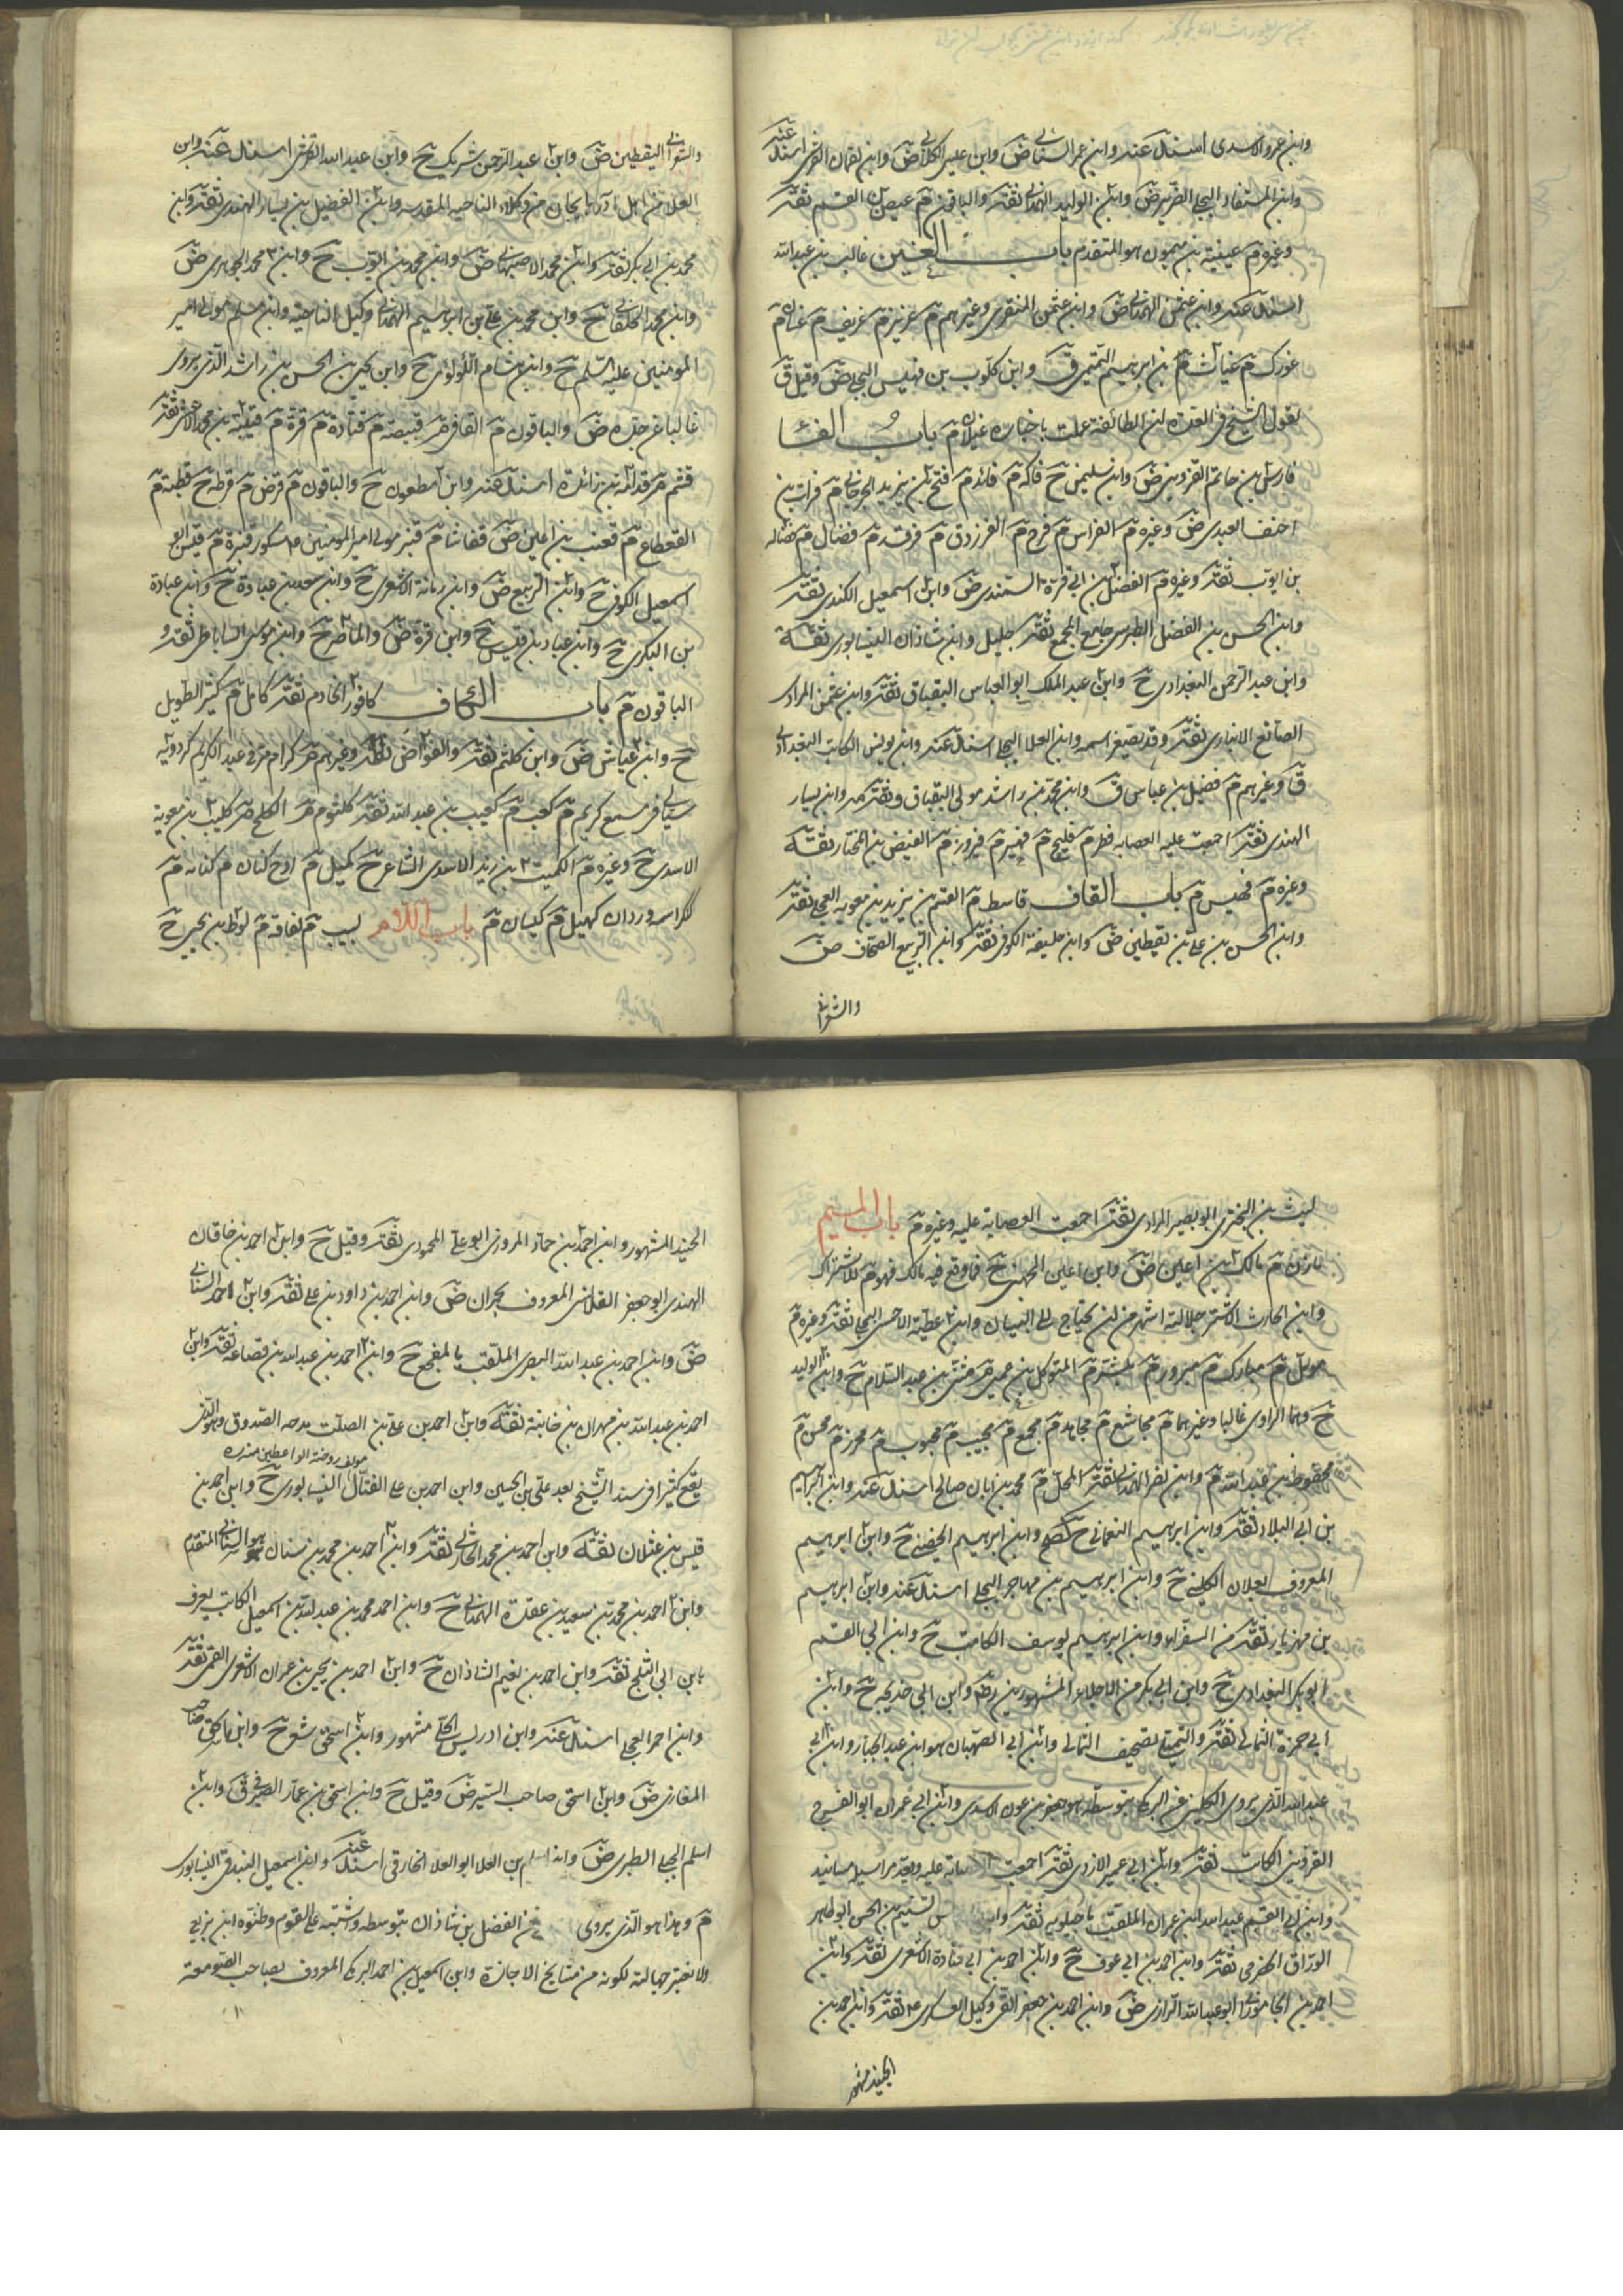 وابن عمرو الاسدى اسند عنه وابن عمر السنانى ض وابن على الكلابى ض وابن لقمان القرشى اسند عنه
وابن المستفاد البجلى الضرير ض وابن الوليد الهمدانى ثقة والباقون م عيص بن القسم ثقة
وغيره م عيينة بن ميمون هو المتقدم باب الغين غالب بن عبد الله
اسند عنه وابن عثمن الهمدانى ض وابن عثمن المنقرى وغيرهم م غريز م غريف م غسان م
غورك م غياث بن ابرهيم التميمى ق وابن كلوب بن فهيس البجلى ض وقيل ق
لقول الشيخ فى العدة ان الطائفة عملت باخباره غيلان م باب الفاء
فارس بن حاتم القزوينى ض وابن سليمن ح فاكه م فائد م فتح بن يزيد الجرجانى م فرات بن
احنف العبدى ض وغيره م الفراس م فرج م الفرزدق م فرقد م فضال م فضاله
بن ايوب ثقة وغيره م الفضل بن ابى قرة السمندى ض وابن اسمعيل الكندى ثقة
وابن الحسن بن الفضل الطبرسى جامع المجمع ثقة جليل وابن شاذان النيسابورى ثقة
وابن عبد الرحمن البغدادى ح وابن عبد الملك ابو العباس البقباق ثقة وابن عثمن المرادى
الصائغ الانبارى ثقة وقد يصغر اسمه وابن العلا البجلى اسند عنه وابن يونس الكاتب البغدادى
ق وغيرهم م فضيل بن عباس ق وابن محمد بن راشد مولى البقباق وثقة وابن يسار
الهندى ثقة اجمعت عليه العصابه فطر م فليح م فهير م فيروز م الفيض بن المختار ثقة
وغيره م فهس م باب القاف قاسط م القسم بن يزيد بن معوية العجلى ثقة
وابن الحسن بن على بن يقطين ض وابن خليفة الكوفى ثقة وابن الربيع الصحاف ض
والشعرانى
والشعرانى اليقطين ض وابن عبد الرحمن شريك ح وابن عبد الله القرشى اسند عنه وابن
العلا من اهل آذربايجان من وكلاء الناحيه المقدسه وابن الفضيل بن يسار الهندى ثقة وابن
محمد بن ابى بكر ثقة وابن محمد الاصبهانى ض وابن محمد بن ايوب ح وابن محمد الجوهرى ض
وابن محمد الخلقانى ح وابن محمد بن على بن ابرهيم الهمدانى وكيل الناحيه وابن مسلم مولى امير
المومنين عليه السلم ح وابن هشام اللؤلؤى ح وابن يحيى بن الحسن بن راشد الذى يروى
غالبا عن جده ض والباقون م القافى م قبيصة م قتادة م قرة م قتيبة بن محمد الاعشى ثقة
قثم م قدامة بن زائدة اسند عنه وابن مظعون ح والباقون م قرض م قرظه ح قطبه م
القعقاع م قعنب بن اعين ض قفاشا م قنبر مولى امير المومنين ع مشكور قنبرة م قيس ابو
اسمعيل الكوفى ح وابن الربيع ض وابن رمانة الاشعرى ح وابن سعد بن عبادة ح وابن عبادة
بن البكرى ح وابن عباد بن قيس ح وابن قرة ض والماطر ح وابن موسى الساباطى ثقة و
الباقون م باب الكاف كافور الخادم ثقة كامل م كثير الطويل
ح وابن عياش ض وابن كلثم ثقة والقواض ثقة وغيرهم م كرام م فى عبد الكريم كردويه
سيأتى فى مسمع كريم م كعب م كعيب بن عبد الله ثقة كلثوم م الكلح م كليب بن معوية
الاسدى ح وغيره م الكميت بن زيد الاسدى الشاعر ح كميل م اوح كنان م كنانه م
كنكر اسمه وردان كهيل م كيسان م باب اللام لبيب م لفافة م لوط بن يحيى ح
ليث بن البخترى ابو بصير المرادى ثقة اجمعت العصابة عليه وغيره م باب الميم
مازن م مالك بن اعين ض وابن اعين الجهنى ح فما وقع فيه مالك فهو م للاشتراك
وابن الحارث الاشتر جلالته اشهر من ان يحتاج الى البيان وابن عطية الاحمسى البجلى ثقة وغيره م
مؤمل م مبارك م مبرور م مبشر م المتوكل بن عمير م مثنى بن عبد السلام ح وابن الوليد
ح وهما الراوى غالبا وغيرهما م مجاشع م مجاهد م مجمع م مجيب م محبوب م محرز م محسن م
محفوظ بن عبد الله م وابن نصر الهمدانى ثقة المحل م محمد بن ابان صالح اسند عنه وابن ابرهيم
بن ابى البلاد ثقة وابن ابرهيم النعمانى ح وابن ابرهيم الحضينى ح وابن ابرهيم
المعروف بعلان الكلينى ح وابن ابرهيم بن مهاجر البجلى اسند عنه وابن ابرهيم
بن مهزيار ثقة من السفراء وابن ابرهيم يوسف الكاتب ح وابن ابى القسم
ابو بكر البغدادى ح وابن ابى بكر من الاجلاء المشهورين وابن ابى خديجه ح وابن
ابى حمزة الثمالى ثقة والتيمى تصحيف الثمالى وابن ابى الصهبان هو ابن عبد الجبار وابن ابى
عبد الله الذى يروى الكلينى عن البرقى بتوسطه هو جعفر بن عون الاسدى وابن ابى عمران ابو الفرج
القزوينى الكاتب ثقة وابن ابى عمير الازدى ثقة اجمعت العصابة عليه ويعد مراسيله مسانيد
وابن ابى القسم عبد الله بن عمران الملقب ماجيلويه ثقة وابن تسنيم بن الحسن ابو طاهر
الوراق الحضرمى ثقة وابن احمد بن ابى عوف ح وابن احمد بن ابى قتادة الاشعرى ثقة وابن
احمد بن الجامورانى ابو عبد الله الرازى ض وابن احمد بن جعفر القمى وكيل العسكرى ع ثقة وابن احمد بن
الجنيد مشهور
الجنيد المشهور وابن احمد بن حماد المروزى ابو على المحمودى ثقة وقيل ح وابن احمد بن خاقان
الهندى ابو جعفر القلانسى المعروف بحمدان ض وابن احمد بن داود بن على ثقة وابن احمد السنانى
ض وابن احمد بن عبد الله البصرى الملقب بالمفجع ح وابن احمد بن عبد الله بن قضاعة ثقة وابن
احمد بن عبد الله بن مهران بن خانبة ثقة وابن احمد بن على بن الصلت مدحه الصدوق وهو الذى
مولف روضة الواعظين منه ره
يقع كثيرا فى سند الشيخ بعد على بن الحسين وابن احمد بن على الفتال النيسابورى ح وابن احمد بن
قيس بن غيلان ثقة وابن احمد بن محمد الحارثى ثقة وابن احمد بن محمد بن سنان هو السنانى المتقدم
وابن احمد بن محمد بن سعيد بن عقدة الهمدانى ح وابن احمد محمد بن عبد الله بن اسمعيل الكاتب يعرف
بابن ابى الثلج ثقة وابن احمد بن نعيم الشاذان ح وابن احمد بن يحيى بن عمران الاشعرى القمى ثقة
وابن احمر العجلى اسند عنه وابن ادريس الحلى مشهور وابن اسحق شعر ح وابن اسحق
المغازى ض وابن اسحق صاحب السير ض وقيل ح وابن اسحق بن عمار الصيرفى ق وابن
اسلم الجبلى الطبرى ض وابن اسلم بن العلا ابو العلا الخارقى اسند عنه وابن اسمعيل البندقى النيسابورى
م وهذا هو الذى يروى عن الفضل بن شاذان بتوسطه واشتبه على القوم وظنوه ابن بزيع
ولا تعتبر جهالته لكونه من مشايخ الاجازة وابن اسمعيل بن احمد البرمكى المعروف بصاحب الصومعة